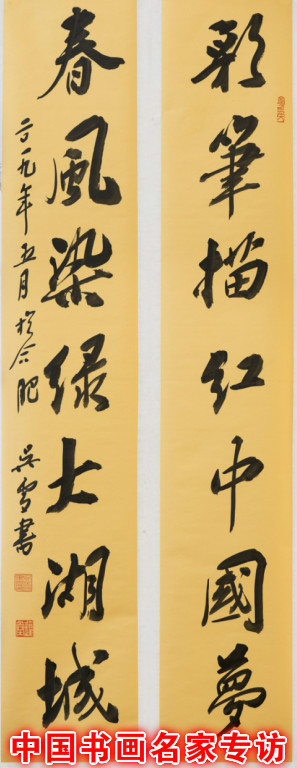 彩筆描红中國夢
春風染绿大湖城
二〇一九年五月於合肥
吳雪書
中国书画名家专访